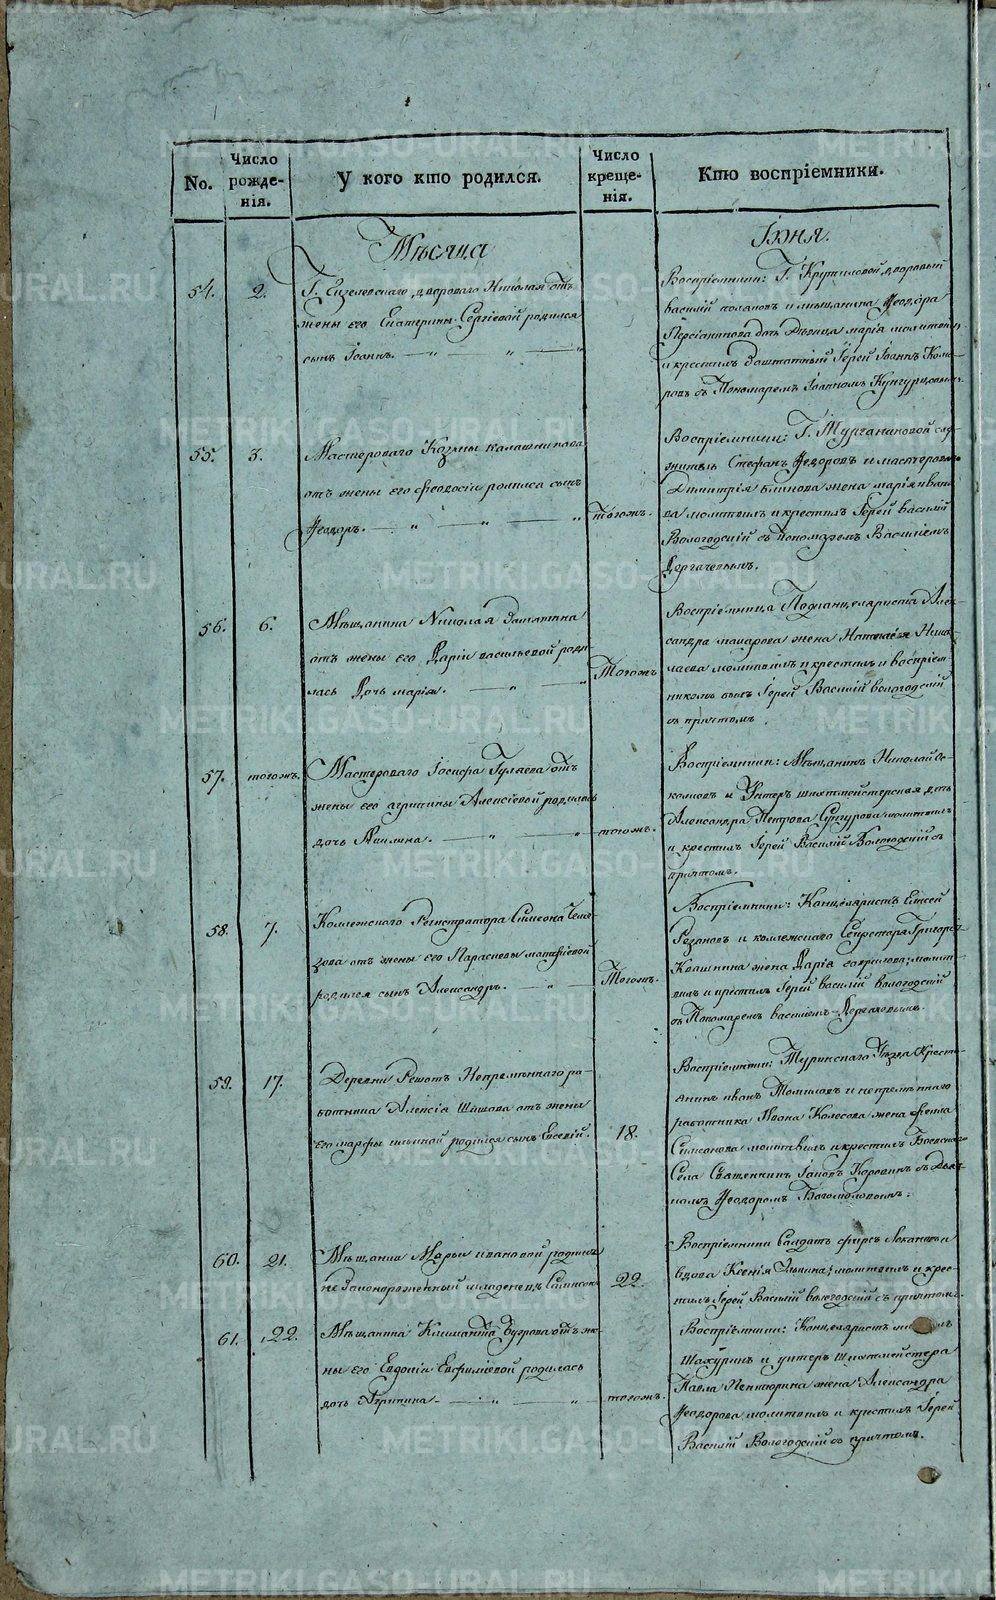 No.
Число рожде-нія.
У кого кто родился.
Число креще-нія.
Кто воспріемники.
Мѣсяца
Іюня.
54.
2.
Г. двороваго Николая отъ
жены его Екатерины Сергіевой родился
сынъ Іоаннъ.
Воспріемники: Г. дворовый
василій и мѣщанина Ѳеодора
дочь Дѣвица марія молитвил
и крестилъ Заштатный Іерей Іоаннъ Кома-
ровъ съ Пономаремъ Іоанномъ
55.
3.
Мастероваго Козмы калашникова
отъ жены его Феодосіи родился сынъ
Ѳеодоръ.
тогожъ.
Воспріемники: Г. Турчаниновой слу-
житель Стефанъ Ѳедоровъ и мастероваго
Димитрія блинова жена марія ивано-
ва молитвилъ и крестилъ Іерей василій
Вологодскій съ пономаремъ Василіемъ
Дергачевымъ.
56.
6.
Мѣщанина Николая Замятина
отъ жены его Даріи васильевой роди-
лась Дочь марія.
Тогожъ
Воспріемница Подканцеляриста Алек-
сандра макарова жена Нико-
лаева молитвилъ и крестилъ и воспріем-
никомъ былъ Іерей Василій вологодскій
съ причтомъ.
57.
тогожъ.
Мастероваго Іосифа Гуляева отъ
жены его агрипины Алексіевой родилась
дочь Акилина.
тогожъ.
Воспріемники: Мѣщанинъ Николай Ос-
коловъ и Унтеръ шихтмейстерская дочь
Александра Петрова Сунгурова молитвилъ
и крестилъ Іерей Василій Вологодскій съ
причтомъ.
58.
7.
Коллежского Регистратора Симеона
зова отъ жены его Парасковьи матфіевой
родился сынъ Александръ.
Тогожъ.
Воспріемники: Канцеляристъ Елисей
Резановъ и коллежскаго Секретаря Григорія
Квашнина жена Дарія гаврилова; молит-
вилъ и крестилъ Іерей василій вологодскій
съ Пономаремъ василіемъ Дергачевымъ.
59.
17.
Деревни Решотъ Непремѣннаго ра-
ботника Алексія Шишова отъ жены
его марфы ильиной родился сынъ Евсевій.
18.
Воспріемники: Туринскаго Уѣзда Кресть-
янинъ иванъ Томиловъ и непремѣннаго
работника Ивана Колесова жена фекла
Симеонова молитвилъ и крестилъ Боевскаго
Села Священникъ Іаковъ Коровинъ съ Дьяч-
комъ Ѳеодоромъ Богомоловымъ.
60.
21.
Мѣщанки Марьи ивановой родился
незаконорожденный младенецъ Симеонъ
22.
Воспріемники Салдатъ фирсъ и
вдова Ксенія Ильина; молитвилъ и кре-
стилъ Іерей Василій вологодскій съ причтомъ.
61.
22.
Мѣщанина Климанта Бугрова отъ же-
ны его Евдокіи Евфиміевой родилась
дочь Агрипина.
тогожъ.
Воспріемники: Канцеляристъ
Шахуринъ и унтеръ Шихтмейстера
Павла Пентюрина жена Александра
Ѳеодорова молитвилъ и крестилъ Іерей
Василій Вологодскій съ причтомъ.
METRIKI.GASO-URAL.RU